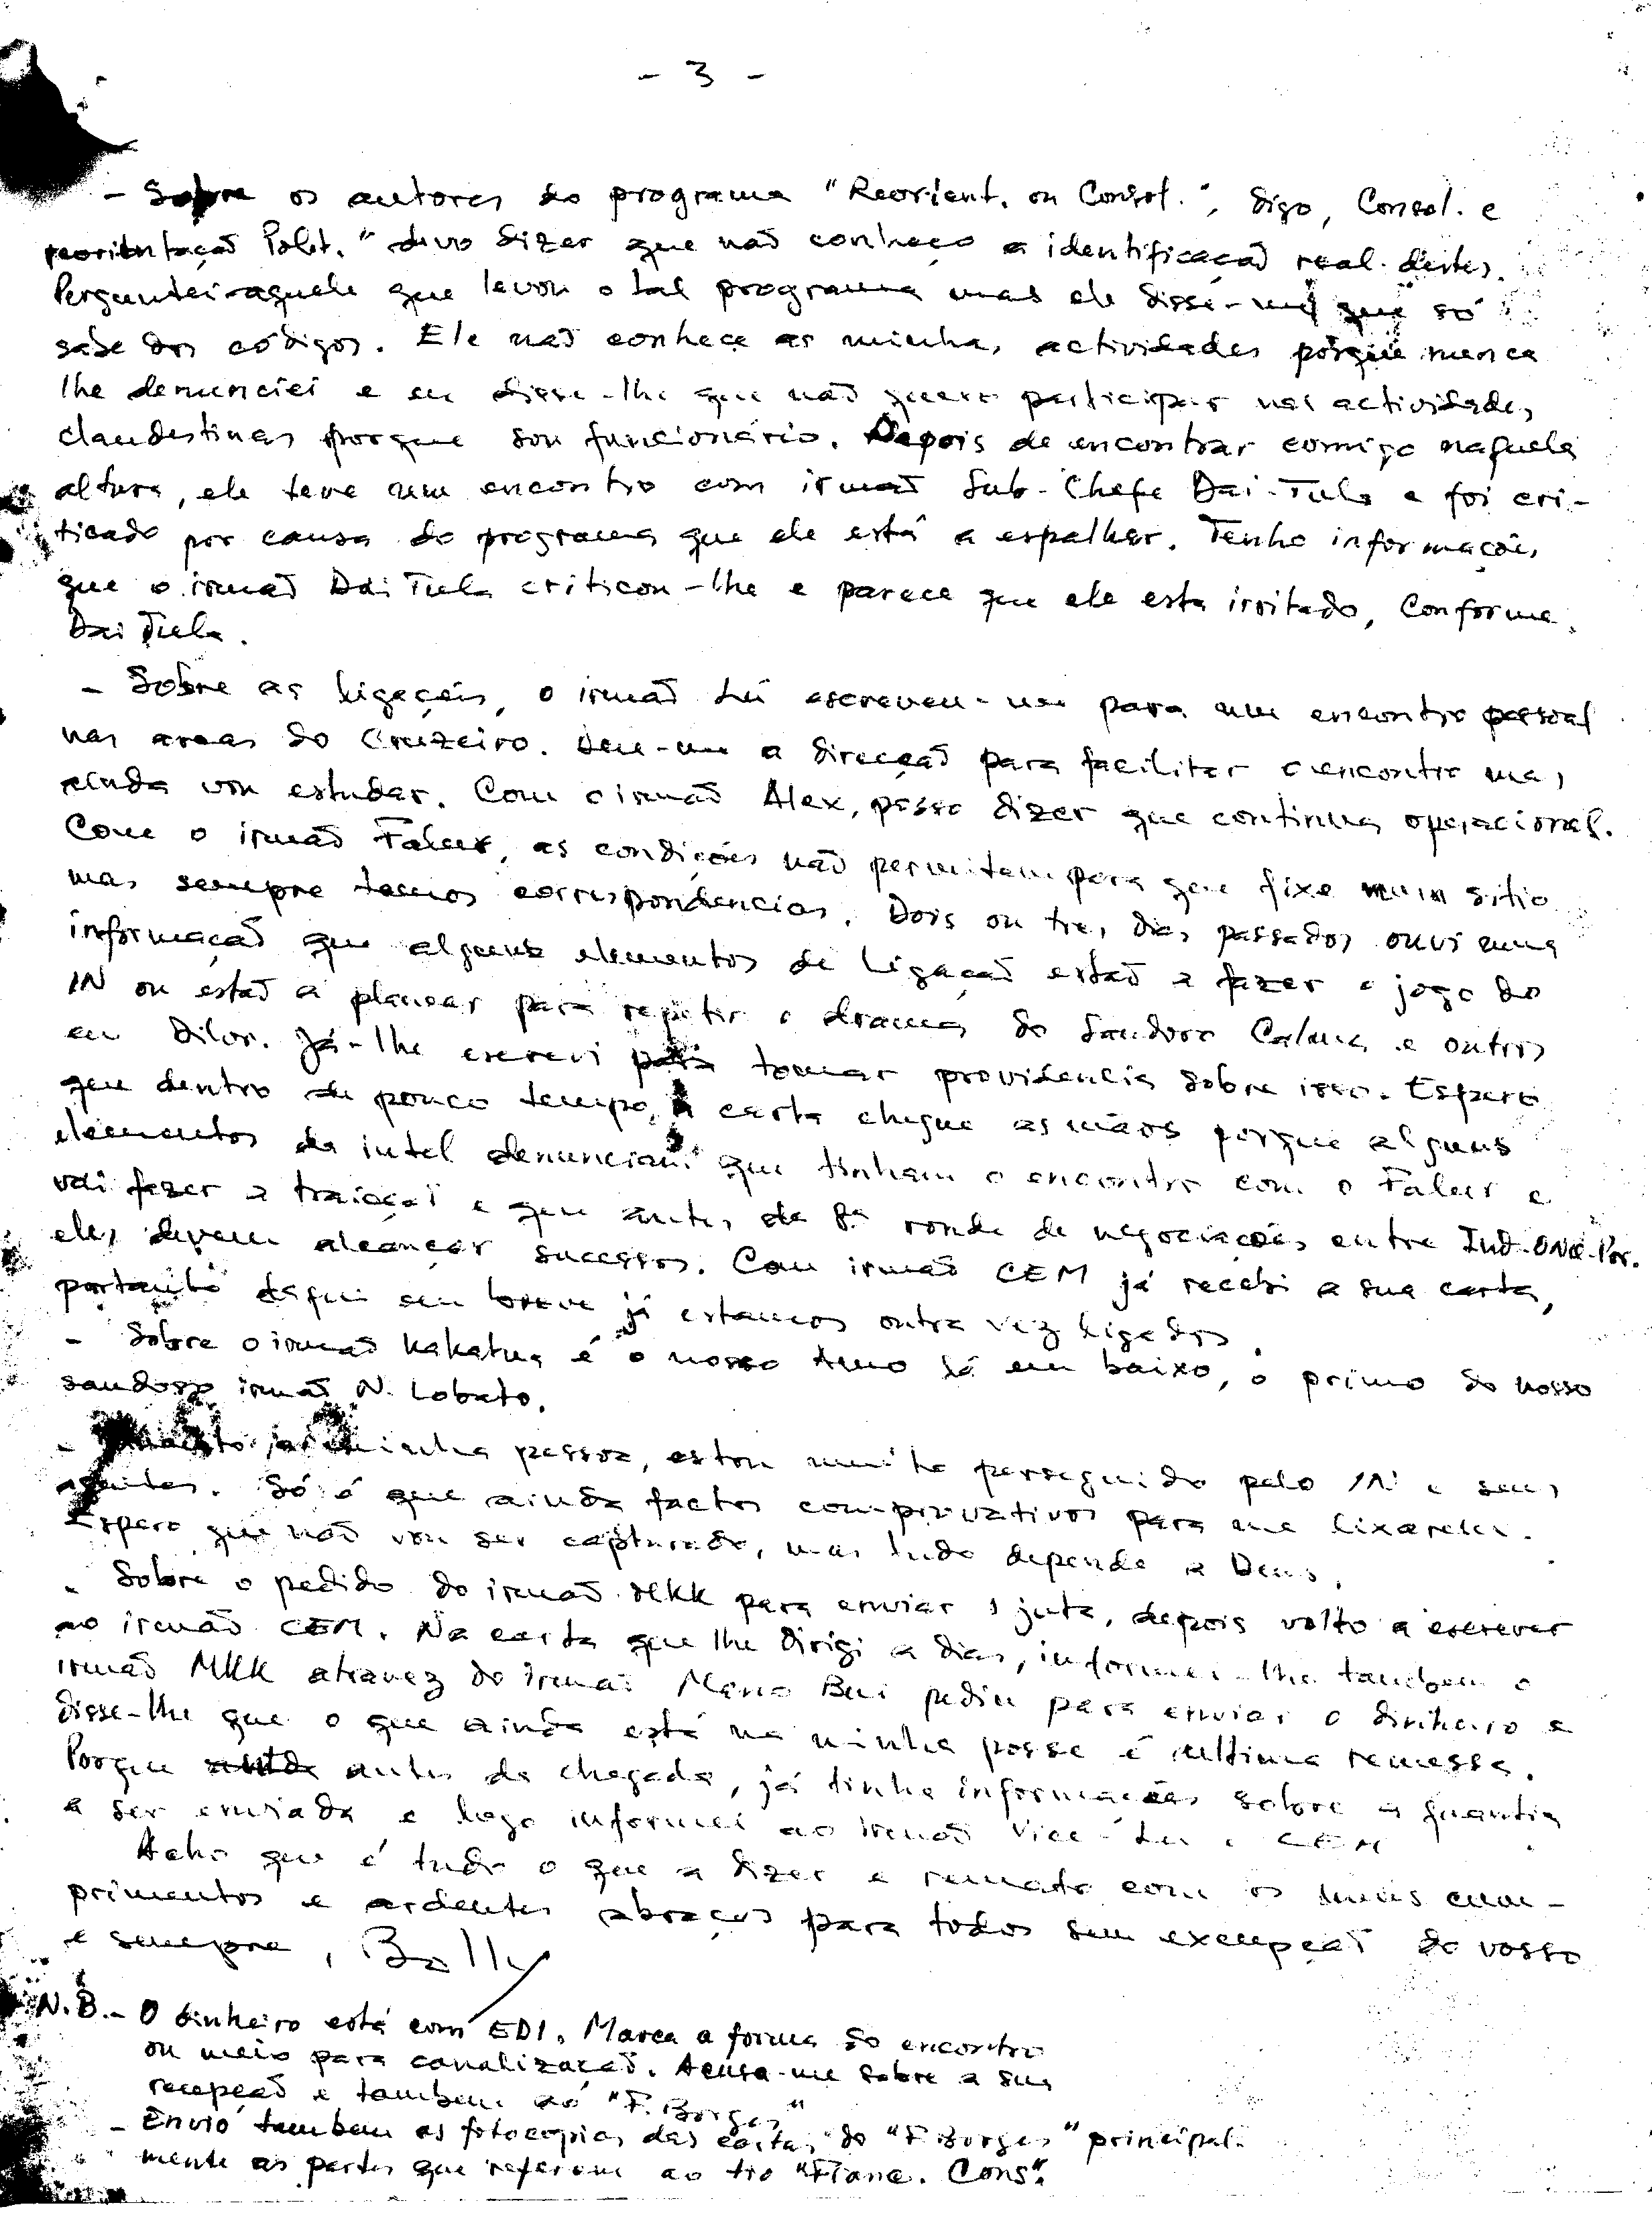 - 3 -
- Sobre os autores do programa "Reorient. ou Consol.", digo, Consol. e
reorientação Polit." devo dizer que não conheço a identificação real destes.
Perguntei aquele que levou o tal programa mas ele disse-me que só
sabe dos códigos. Ele não conhece as minhas actividades porque nunca
lhe denunciei e eu disse-lhe que não quero participar nas actividades
clandestinas porque sou funcionário. Depois de encontrar comigo naquela
altura, ele teve um encontro com irmão Sub-Chefe Dai-Tula e foi cri-
ticado por causa do programa que ele está a espalhar. Tenho informações
que o irmão Dai Tula criticou-lhe e parece que ele esta irritado, Conforme
Dai Tula.
- Sobre as ligações, o irmão Lu escreveu-me para um encontro pessoal
nas areas do Cruzeiro. Deu-me a direcção para facilitar o encontro mas
ainda vou estudar. Com o irmão Alex, posso dizer que continua operacional.
Com o irmão Falur, as condições não permitem para que fixe num sitio
mas sempre temos correspondencias. Dois ou tres dias passados ouvi uma
informação que alguns elementos de ligação estão a fazer o jogo do
IN ou estão a planear para repetir o drama do Saudoso Calma e outros
em Dilor. Já-lhe escrevi para tomar providencia sobre isso. Espero
que dentro de pouco tempo, a carta chegue as mãos porque alguns
elementos da intel denunciam que tinham o encontro com o Falur e
vai fazer a traição e que antes da 8ª ronda de negociações entre Ind-ONU-Por.
eles devem alcançar sucessos. Com irmão CEM já recebi a sua carta,
portanto daqui em breve já estamos outra vez ligados.
- Sobre o irmão Kakatua é o nosso Amo lá em baixo, o primo do nosso
saudoso irmão N. Lobato.
- Quanto a minha pessoa, estou muito perseguido pelo IN e seus
agentes. Só é que ainda factos comprovativos para me lixarem.
Espero que não vou ser capturado, mas tudo depende a Deus.
- Sobre o pedido do irmão MKK para enviar 1 juta, depois volto a escrever
ao irmão CEM. Na carta que lhe dirigi a dias, informei-lhe tambem o
irmão MKK atravez do irmão Mano Bui pediu para enviar o dinheiro e
disse-lhe que o que ainda está na minha posse é ultima remessa.
Porque antes da chegada, já tinha informações sobre a quantia
a ser enviada e logo informei ao irmão Vice-Lu e CEM
Acho que é tudo o que a dizer e remato com os meus cum-
primentos e ardentes abraços para todos sem excepção do vosso
e sempre, Bally
N.B.- O dinheiro está com EDI. Marca a forma do encontro
ou meio para canalização. Acusa-me sobre a sua
recepção e tambem ao "F. Borges"
- Envio tambem as fotocopias das cartas do "F. Borges" principal-
mente as partes que referem ao tio "Franc. Cons".